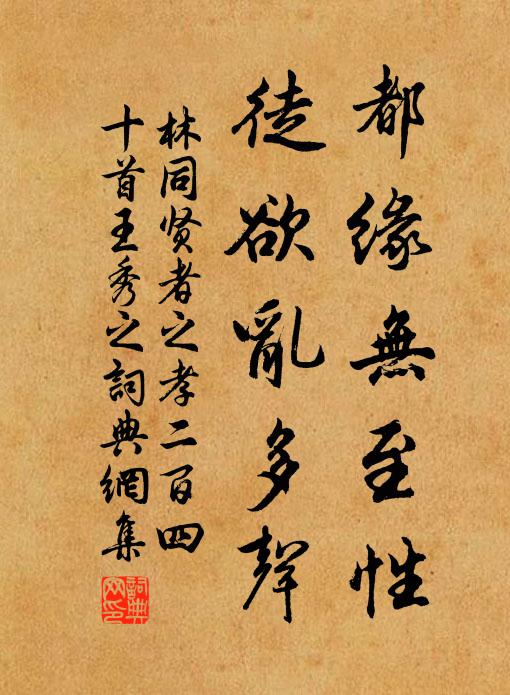 都緣無至性
徒欲亂多聲
林同贤者之孝二百四
十首王秀之詞典網集
詞典
网印